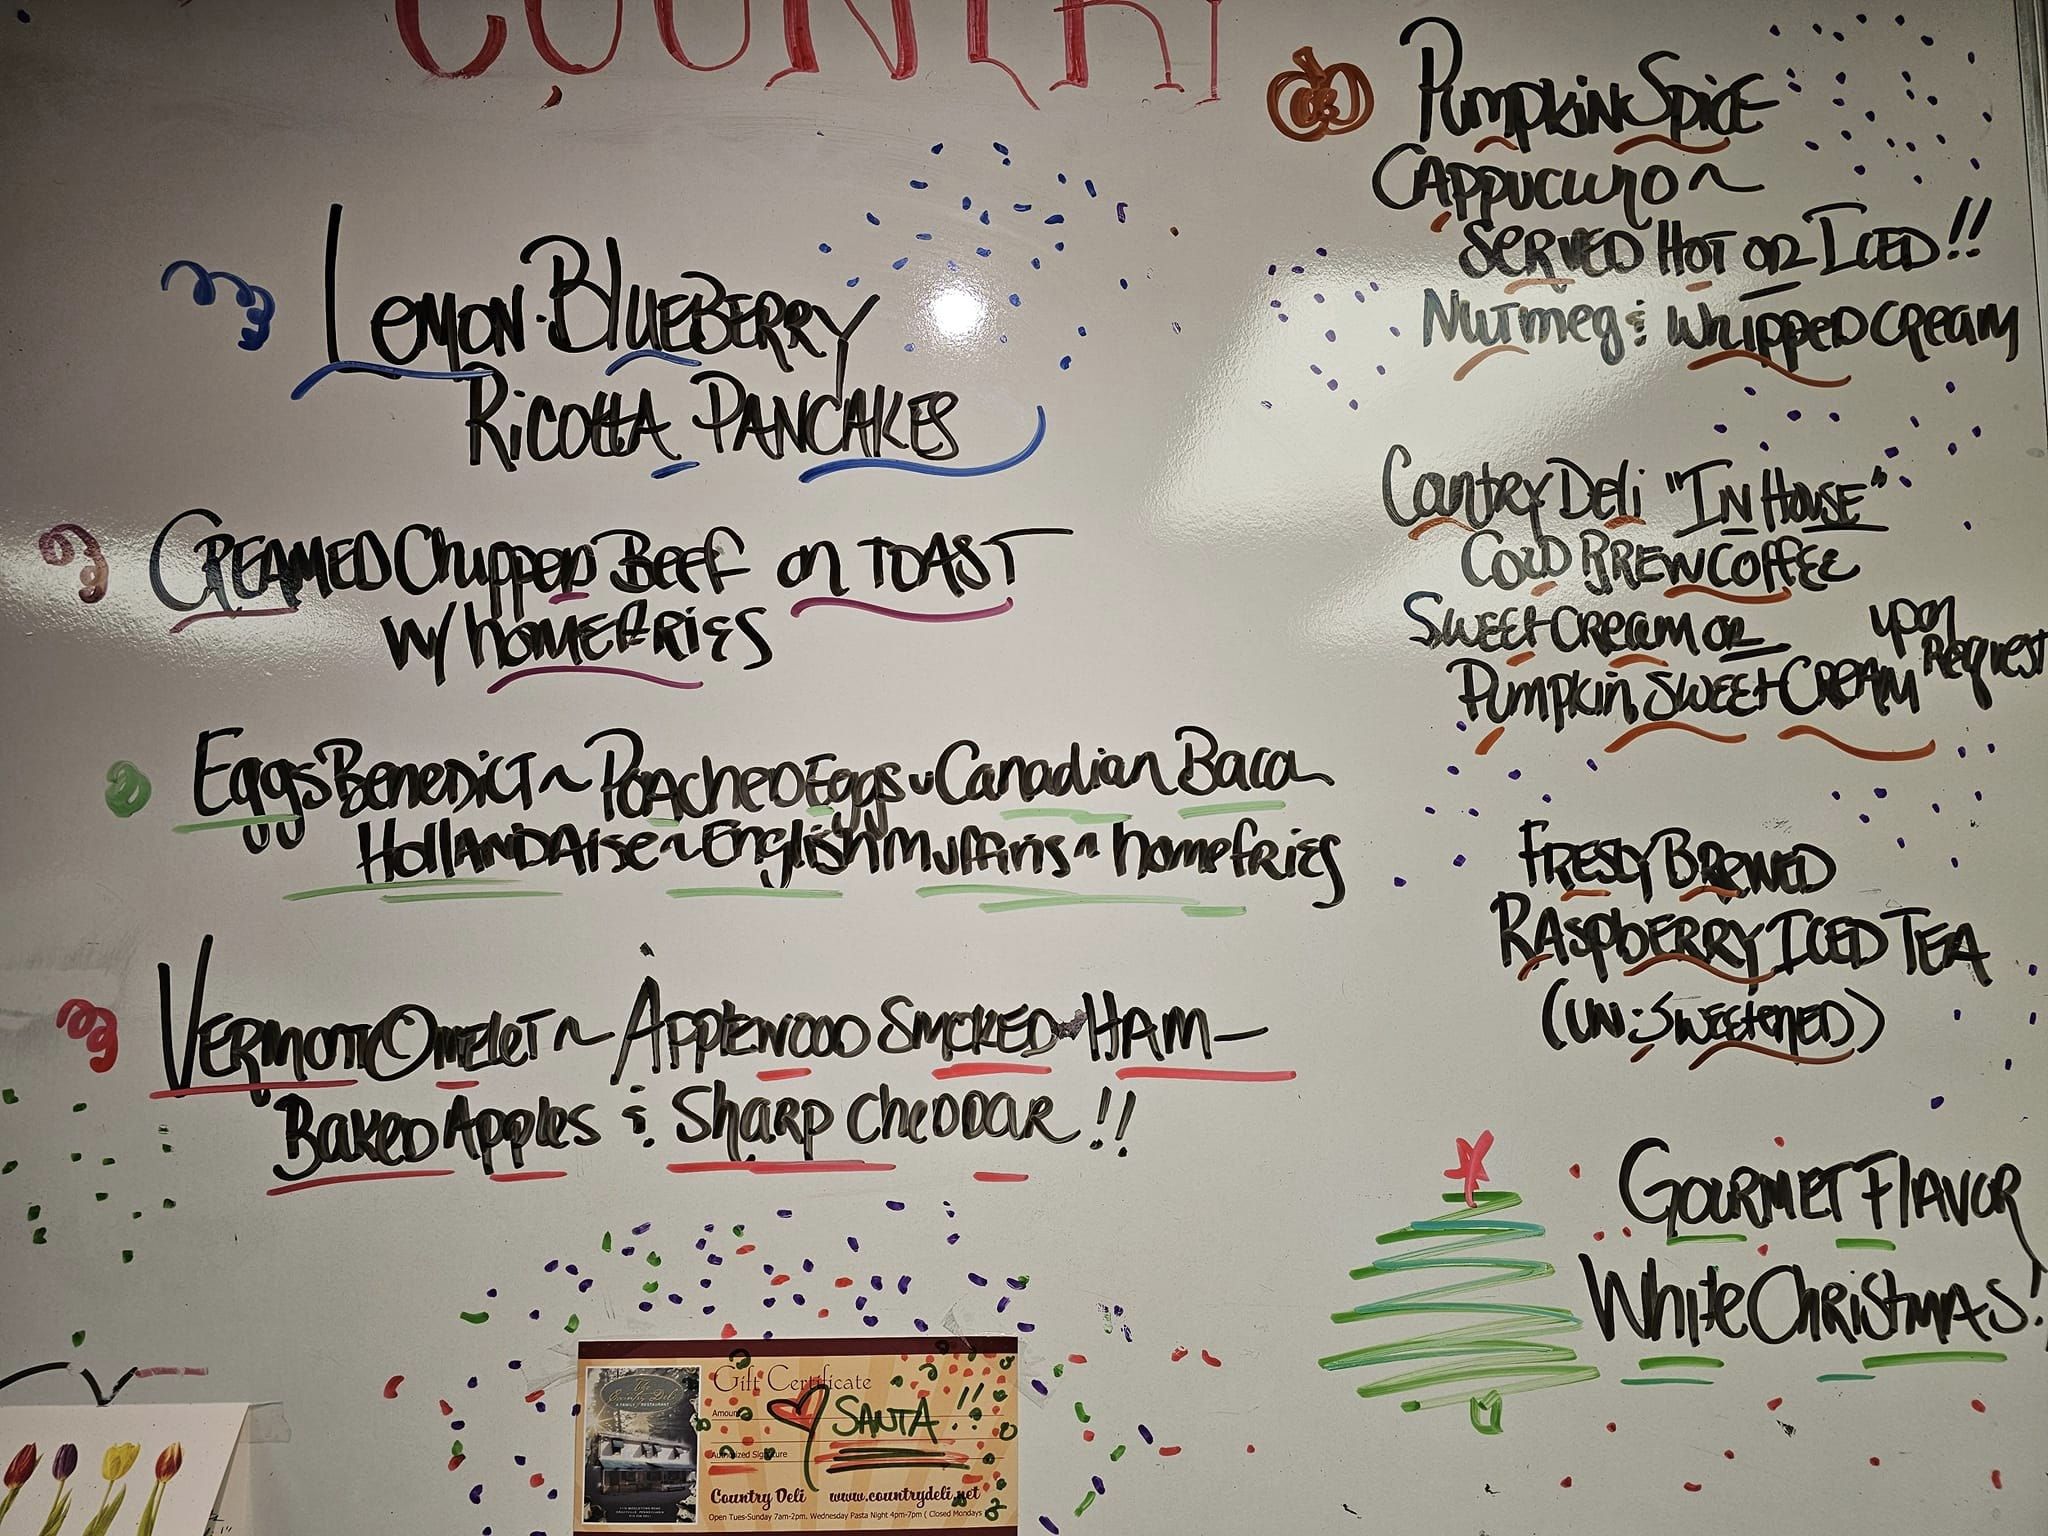 COUNTRY
LEMON·BLUEBERRY
RICOTTA PANCAKES
CREAMED Chipped BEEF on TOAST
w/ homefries
Eggs Benedict ~ Poached Eggs ~ Canadian Bacon
Hollandaise ~ English Muffins ~ homefries
VERMONT OMELET ~ APPLEWOOD SMOKED HAM —
BAKED APPLES & SHARP CHEDDAR!!
PUMPKIN SPICE
CAPPUCCINO ~
SERVED HOT OR ICED!!
NUTMEG & WHIPPED CREAM
COUNTRY DELI "IN HOUSE"
COLD BREW COFFEE
SWEET CREAM OR
PUMPKIN SWEET CREAM
upon
Request
FRESLY BREWED
RASPBERRY ICED TEA
(UN-SWEETENED)
GOURMET FLAVOR
WHITE CHRISTMAS!
The
Country Deli
A FAMILY RESTAURANT
Gift Certificate
Amount
SANTA!!
Authorized Signature
Country Deli www.countrydeli.net
Open Tues-Sunday 7am-2pm. Wednesday Pasta Night 4pm-7pm ( Closed Mondays